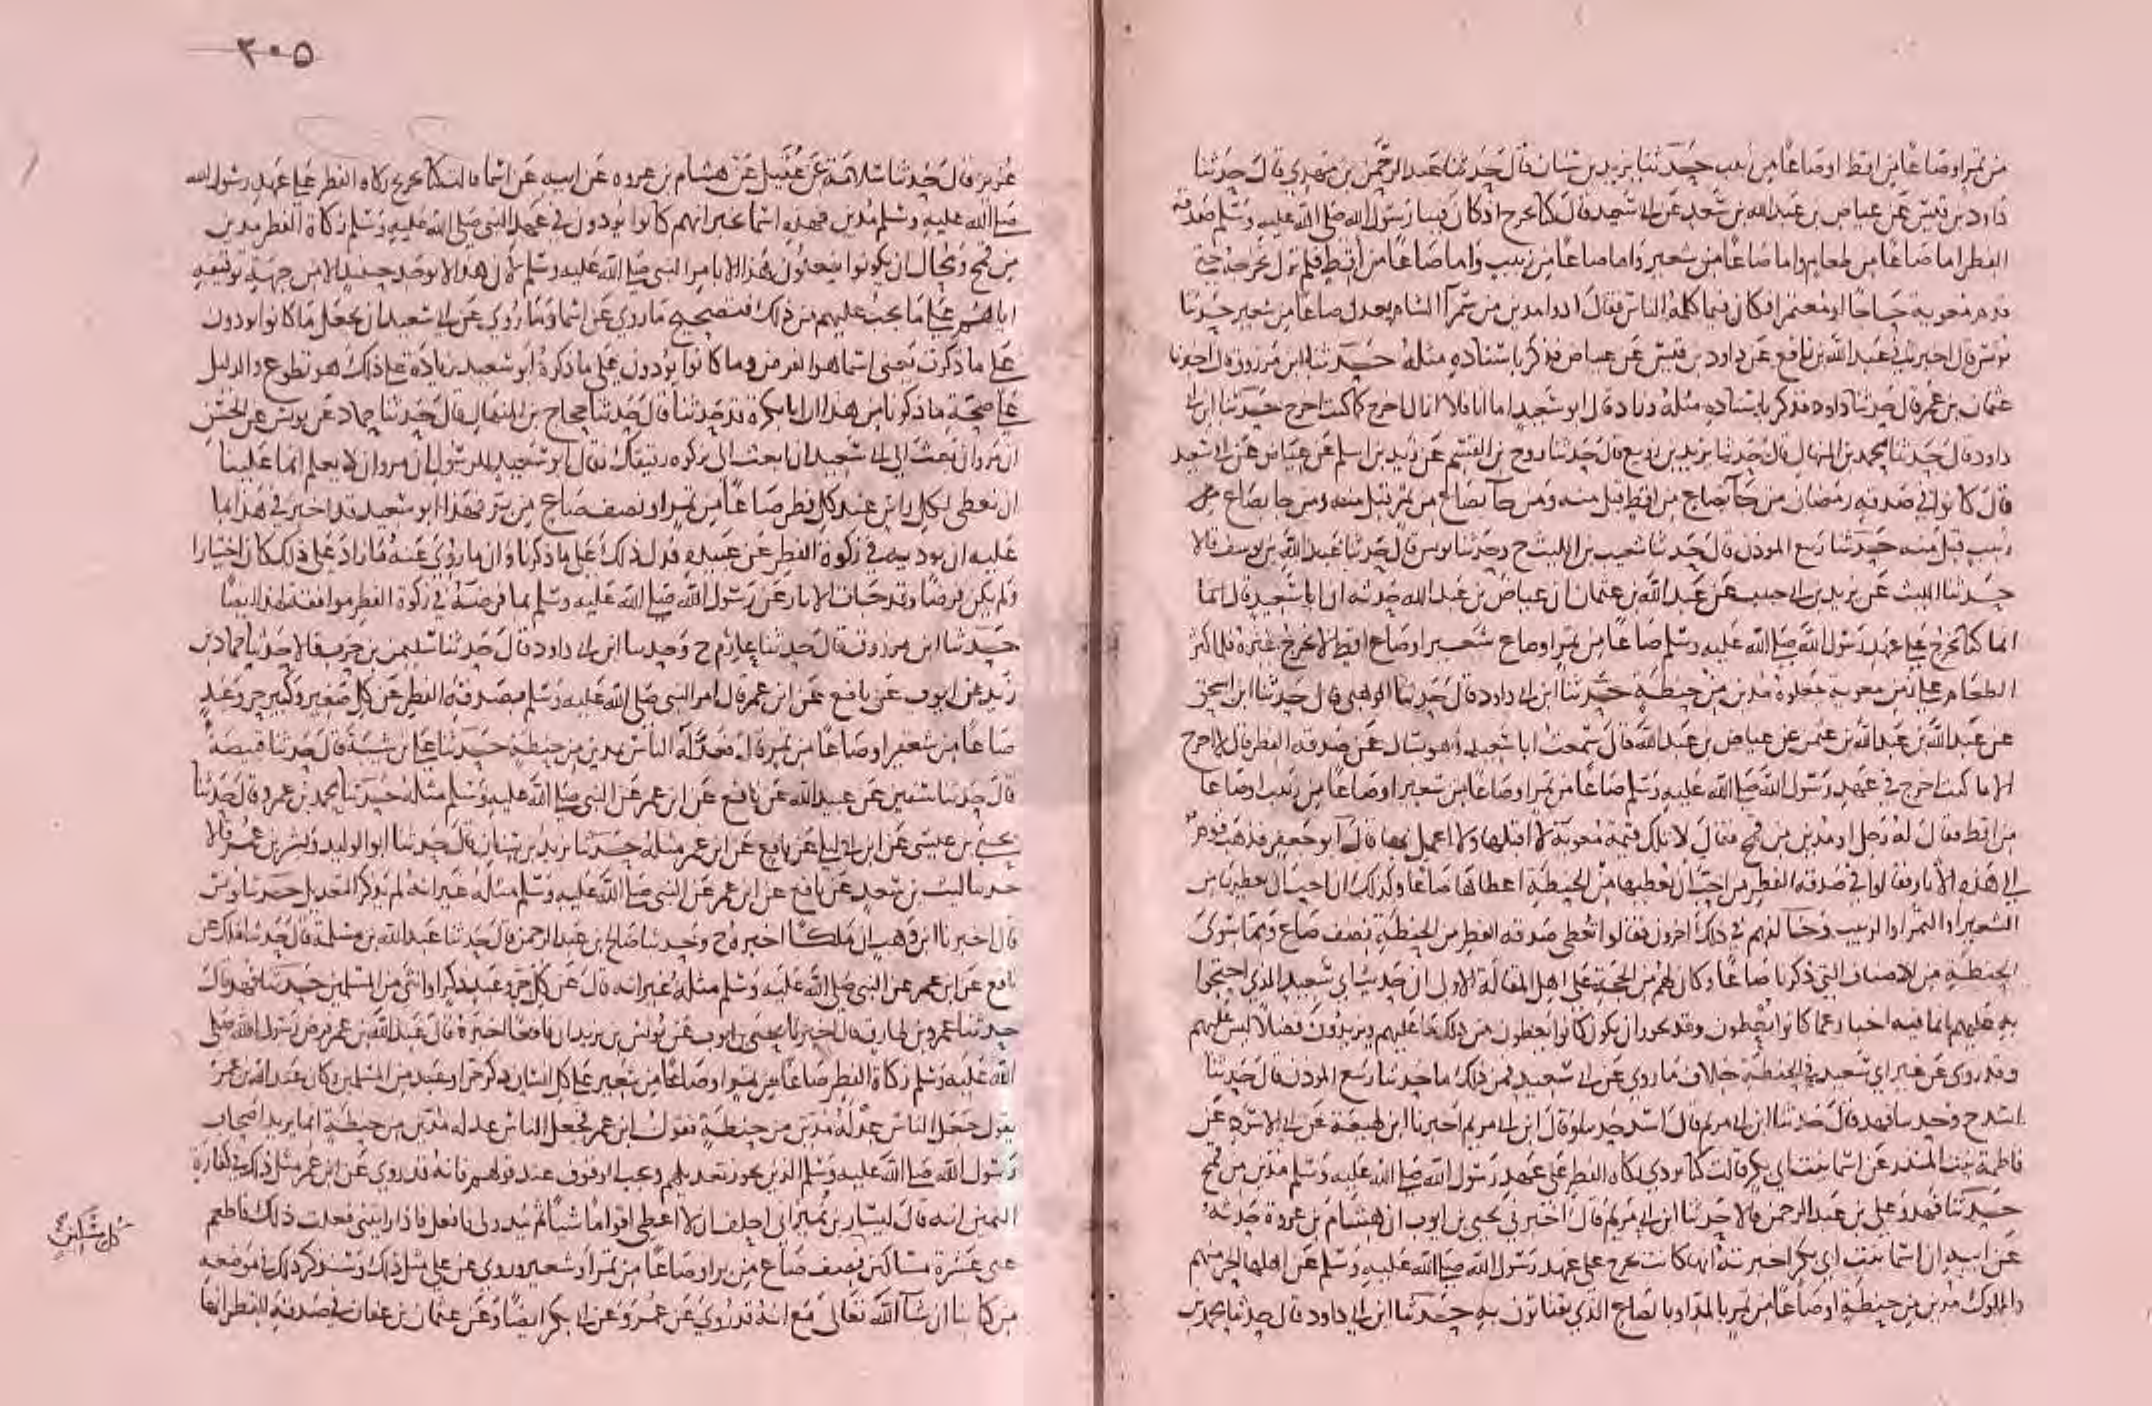 من تمر او صاعا من اقط او صاعا من زبيب حدثنا يزيد بن سنان قال حدثنا عبد الرحمن بن مهدي قال حدثنا
داود بن قيس عن عياض بن عبد الله بن سعد عن ابي سعيد قال كنا نخرج اذ كان فينا رسول الله صلى الله عليه وسلم صدقة
الفطر اما صاعا من طعام واما صاعا من شعير واما صاعا من زبيب واما صاعا من اقط فلم نزل نخرجه حتى
قدم معوية حاجا او معتمرا فكان فيما كلم الناس فقال ادوا مدين من سمرآ الشام يعدل صاعا من شعير حدثنا
يونس قال اخبرني عبد الله بن نافع عن داود بن قيس عن عياض فذكر باسناده مثله حدثنا ابن مرزوق قال اخبرنا
عثمان بن عمر قال حدثنا داود فذكر باسناده مثله وزاد قال ابو سعيد اما انا فلا ازال اخرج كما كنت اخرج حدثنا ابن ابي
داود قال حدثنا محمد بن المنهال قال حدثنا يزيد بن زريع قال حدثنا روح بن القسم عن زيد بن اسلم عن عياض عن ابي سعيد
قال كانوا في صدقة رمضان من جآ بصاع من اقط قبل منه ومن جآ بصاع من تمر قبل منه ومن جا بصاع من
زبيب قبل منه حدثنا ربيع الموذن قال حدثنا شعيب بن الليث ح وحدثنا يونس قال حدثنا عبد الله بن يوسف قالا
حدثنا الليث عن يزيد بن ابي حبيب عن عبد الله بن عثمان ان عياض بن عبد الله حدثه ان ابا سعيد قال انما
انما كنا نخرج على عهد رسول الله صلى الله عليه وسلم صاعا من تمر او صاع شعير او صاع اقط لا نخرج غيره فلما كثر
الطعام في زمن معوية جعلوه مدين من حنطة حدثنا ابن ابي داود قال حدثنا الوهبي قال حدثنا ابن اسحق
عن عبد الله بن عبد الله بن عثمن عن عياض بن عبد الله قال سمعت ابا سعيد وهو يسال عن صدقة الفطر قال لا اخرج
الا ما كنت اخرج في عهد رسول الله صلى الله عليه وسلم صاعا من تمر او صاعا من شعير او صاعا من زبيب او صاعا
من اقط فقال له رجل او مدين من قمح فقال لا تلك قيمة معوية لا اقبلها ولا اعمل بها قال ابو جعفر فذهب قوم
الى هذه الاثار فقالوا في صدقة الفطر من احب ان يعطيها من الحنطة اعطاها صاعا وكذلك ان احب ان يعطيها من
الشعير او التمر او الزبيب وخالفهم في ذلك اخرون فقالوا نعطي صدقة الفطر من الحنطة نصف صاع ومما سوى
الحنطة من الاصناف التي ذكرنا صاعا وكان لهم من الحجة على اهل المقالة الاولى ان حديث ابي سعيد الذي احتجوا
به عليهم انما فيه اخبار عما كانوا يعطون وقد يجوز ان يكون كانوا يعطون من ذلك ما عليهم ويزيدون فضلا ليس عليهم
وقد روي عن غير ابي سعيد في الحنطة خلاف ما روي عن ابي سعيد فمن ذلك ما حدثنا ربيع الموذن قال حدثنا
اسد ح وحدثنا فهد قال حدثنا ابن ابي مريم قال اسد حدثنا وقال ابن ابي مريم اخبرنا ابن لهيعة عن ابي الاسود عن
فاطمة بنت المنذر عن اسما بنت ابي بكر قالت كنا نودي زكاة الفطر على عهد رسول الله صلى الله عليه وسلم مدين من قمح
حدثنا فهد وعلي بن عبد الرحمن قالا حدثنا ابن ابي مريم قال اخبرني يحيى بن ايوب ان هشام بن عروة حدثه
عن ابيه ان اسما بنت ابي بكر اخبرته انها كانت تخرج على عهد رسول الله صلى الله عليه وسلم عن اهلها الحر منهم
والمملوك مدين من حنطة او صاعا من تمر بالمد او بالصاع الذي يقتاتون به حدثنا ابن ابي داود قال حدثنا محمد بن
٣٠٥
عزيز قال حدثنا سلامة عن عقيل عن هشام بن عروه عن ابيه عن اسما قالت كنا نخرج زكاه الفطر على عهد رسول الله
صلى الله عليه وسلم مدين فهذه اسما تخبر انهم كانوا يودون في عهد النبي صلى الله عليه وسلم زكاة الفطر مدين
من قمح ومحال ان يكونوا يفعلون هذا الا بامر النبي صلى الله عليه وسلم لان هذا لا يوخذ حينيذ الا من جهة توقيفه
اياهم على ما يجب عليهم من ذلك فتصحيح ما روي عن اسما وما روي عن ابي سعيد ان يجعل ما كانوا يودون
على ما ذكرت يعني اسما هو الفرض وما كانوا يؤدون على ما ذكره ابو سعيد زيادة على ذلك هو تطوع والدليل
على صحة ما ذكرنا من هذا ان ابا بكرة قد حدثنا قال حدثنا حجاج بن المنهال قال حدثنا حماد عن يونس عن الحسن
ان مروان بعث الى ابي سعيد ان ابعث الي بزكوه رقيقك فقال ابو سعيد للرسول ان مروان لا يعلم انما علينا
ان نعطي لكل راس عند كل فطر صاعا من تمر او نصف صاع من بر فهذا ابو سعيد قد اخبر في هذا بما
عليه ان يوديه في زكوة الفطر عن عبيده فدل ذلك على ما ذكرنا وان ما روي عنه مما زاد على ذلك كان اختيارا
ولم يكن فرضا وقد جات الاثار عن رسول الله صلى الله عليه وسلم بما فرضه في زكوة الفطر موافقة لهذا ايضا
حدثنا ابن مرزوق قال حدثنا عارم ح وحدثنا ابن ابي داود قال حدثنا سليمن بن حرب قالا حدثنا حماد بن
زيد عن ايوب عن نافع عن ابن عمر قال امر النبي صلى الله عليه وسلم بصدقة الفطر عن كل صغير وكبير حر وعبد
صاعا من شعير او صاعا من تمر قال فعدله الناس بمدين من حنطة حدثنا علي بن شيبة قال حدثنا قبيصة
قال حدثنا سفين عن عبيد الله عن نافع عن ابن عمر عن النبي صلى الله عليه وسلم مثله حدثنا محمد بن عمرو قال حدثنا
يحيى بن عيسى عن ابن ابي ليلى عن نافع عن ابن عمر مثله حدثنا يزيد بن سنان قال حدثنا ابو الوليد وبشر بن عمر قالا
حدثنا ليث بن سعد عن نافع عن ابن عمر عن النبي صلى الله عليه وسلم مثله غير انه لم يذكر التعديل حدثنا يونس
قال اخبرنا ابن وهب ان ملكا اخبره ح وحدثنا صالح بن عبد الرحمن قال حدثنا عبد الله بن مسلمة قال حدثنا ملك عن
نافع عن ابن عمر عن النبي صلى الله عليه وسلم مثله غير انه قال عن كل حر وعبد ذكر او انثى من المسلمين حدثنا فهد قال
حدثنا عمرو بن طارق قال اخبرنا يحيى بن ايوب عن يونس بن يزيد ان نافعا اخبره قال عبد الله بن عمر فرض رسول الله صلى
الله عليه وسلم زكاة الفطر صاعا من تمر او صاعا من شعير على كل انسان ذكر حر او عبد من المسلمين وكان عبد الله بن عمر
يقول جعل الناس عدله مدين من حنطة فقول ابن عمر فجعل الناس عدله مدين من حنطة انما يريد اصحاب
رسول الله صلى الله عليه وسلم الذين يجوز تعديلهم ويجب الوقوف عند قولهم فانه قد روي عن ابن عمر مثل ذلك في كفارة
اليمين انه قال ليسار بن نمير اني احلف ان لا اعطي اقواما شيا ثم يبدو لي فافعل فاذا رايتني فعلت ذلك فاطعم
عني عشرة مساكين نصف صاع من بر او صاعا من تمر او شعير وروي عن علي مثل ذلك وسنذكر ذلك في موضعه
من كتابنا ان شآ الله تعالى مع انه قد روي عن عمر وعن ابي بكر ايضا وعن عثمان بن عفان في صدقة الفطر انها
كل مسكين